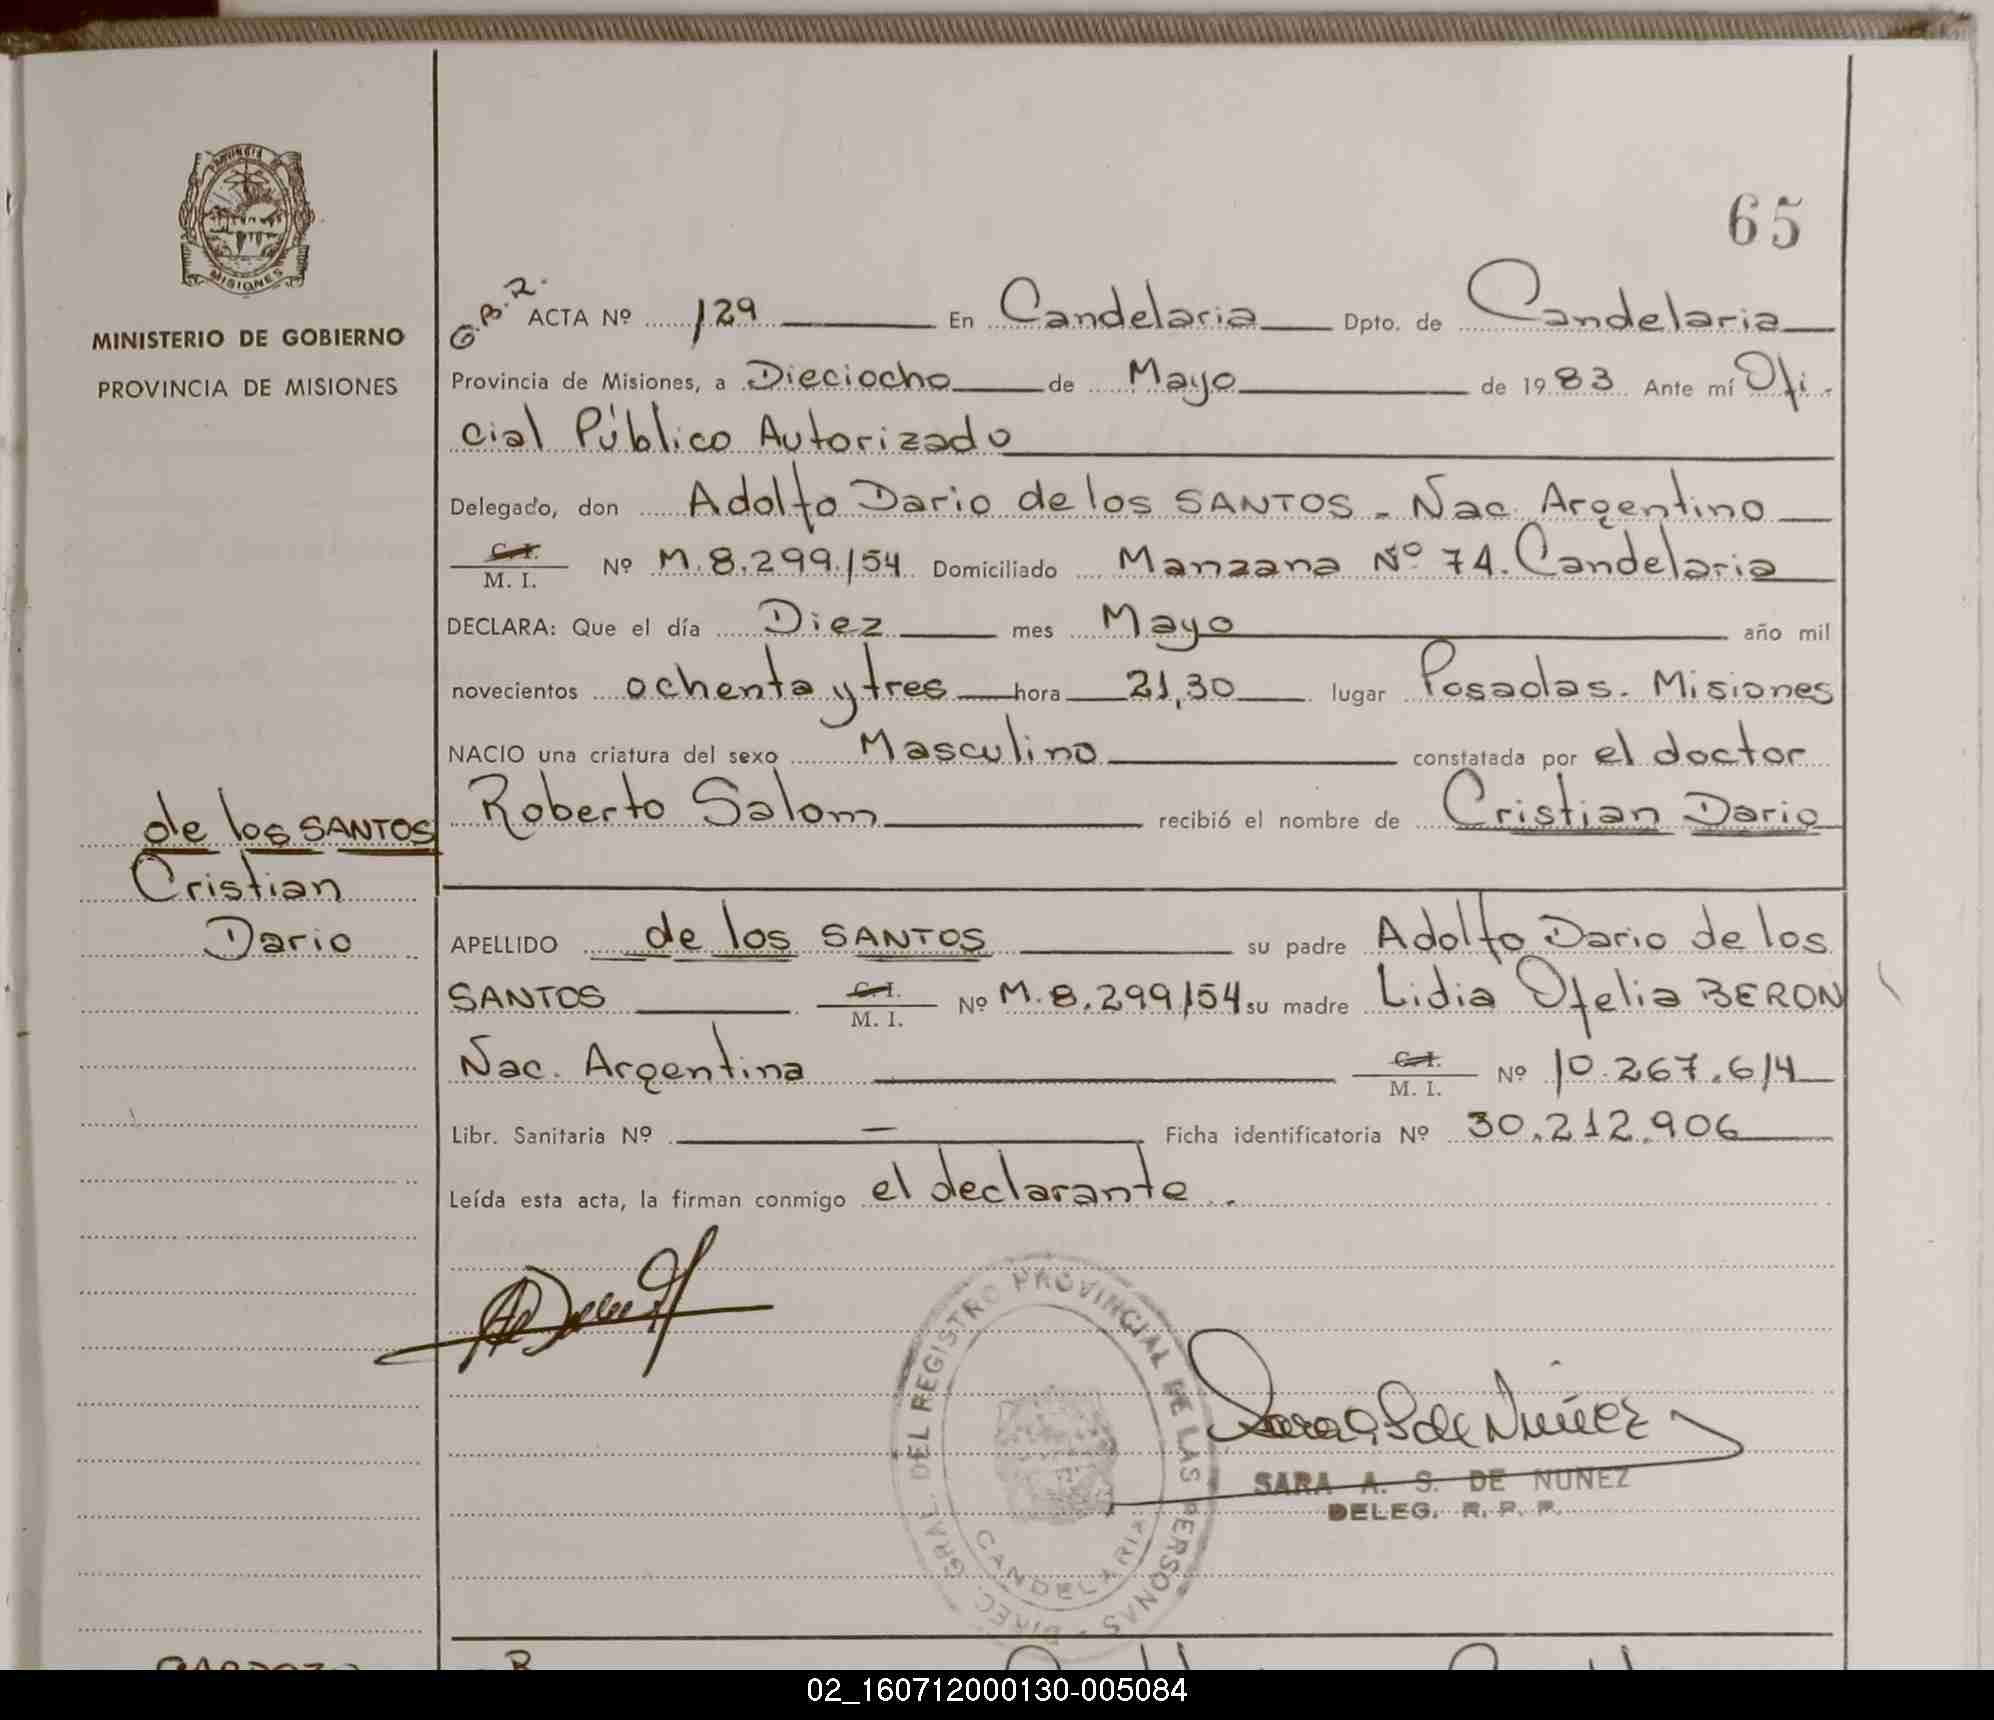 PROVINCIA
MISIONES
MINISTERIO DE GOBIERNO
PROVINCIA DE MISIONES
65
G.B.R. ACTA Nº 129 En Candelaria Dpto. de Candelaria
Provincia de Misiones, a Dieciocho de Mayo de 1983 Ante mí Ofi
cial Público Autorizado
Delegado, don Adolfo Dario de los SANTOS - Nac. Argentino
C. I.
M. I. Nº M.8.299.154 Domiciliado Manzana Nº 74. Candelaria
DECLARA: Que el día Diez mes Mayo año mil
novecientos ochenta y tres hora 21,30 lugar Posadas. Misiones
NACIO una criatura del sexo Masculino constatada por el doctor
Roberto Salom recibió el nombre de Cristian Dario
de los SANTOS
Cristian
Dario
APELLIDO de los SANTOS su padre Adolfo Dario de los
SANTOS C. I. M. I. Nº M.8.299.154 su madre Lidia Ofelia BERON
Nac. Argentina C. I. M. I. Nº 10.267.614
Libr. Sanitaria Nº — Ficha identificatoria Nº 30.212.906
Leída esta acta, la firman conmigo el declarante.
DIREC. GRAL. DEL REGISTRO PROVINCIAL DE LAS PERSONAS -
CANDELARIA
Sara A. S. de Nuñez
SARA A. S. DE NUÑEZ
DELEG. R. P. P.
02_160712000130-005084